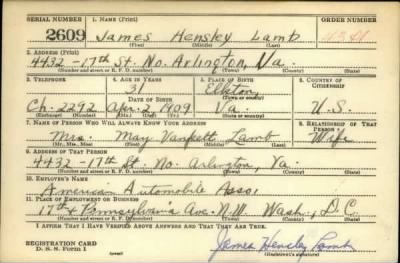 SERIAL NUMBER 1. NAME (Print) ORDER NUMBER
2609 James Hensley Lamb
(First) (Middle) (Last)
2. ADDRESS (Print)
4432-17th St. No. Arlington, Va.
(Number and street or R. F. D. number) (Town) (County) (State)
3. TELEPHONE 4. AGE IN YEARS 5. PLACE OF BIRTH 6. COUNTRY OF CITIZENSHIP
31 Elkton
DATE OF BIRTH (Town or county)
Ch. 2292 Apr. 2, 1909 Va. U.S.
(Exchange) (Number) (Mo.) (Day) (Yr.) (State or country)
7. NAME OF PERSON WHO WILL ALWAYS KNOW YOUR ADDRESS 8. RELATIONSHIP OF THAT PERSON
Mrs. May Lamb Wife
(Mr., Mrs., Miss) (First) (Middle) (Last)
9. ADDRESS OF THAT PERSON
4432-17th St. No. Arlington, Va.
(Number and street or R. F. D. number) (Town) (County) (State)
10. EMPLOYER'S NAME
American Automobile Asso.
11. PLACE OF EMPLOYMENT OR BUSINESS
17th & Pennsylvania Ave. N.W. Wash., D.C.
(Number and street or R. F. D. number) (Town) (County) (State)
I AFFIRM THAT I HAVE VERIFIED ABOVE ANSWERS AND THAT THEY ARE TRUE.
REGISTRATION CARD
D. S. S. Form 1 James Hensley Lamb
(Registrant's signature)